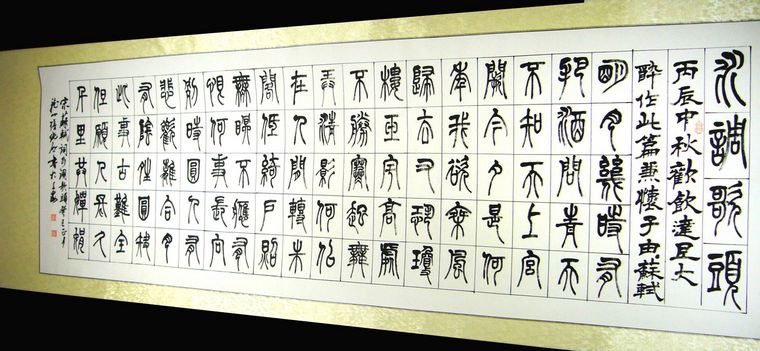 水調歌頭
丙辰中秋歡飲達旦大
醉作此篇兼懷子由蘇軾
明月幾時有
把酒問青天
不知天上宮
闕今夕是何
年我欲乘風
歸去又恐瓊
樓玉宇高處
不勝寒起舞
弄清影何似
在人間轉朱
閣低綺戶照
無眠不應有
恨何事長向
別時圓人有
悲歡離合月
有陰晴圓缺
此事古難全
但願人長久
千里共嬋娟
宋蘇軾詞調歌頭